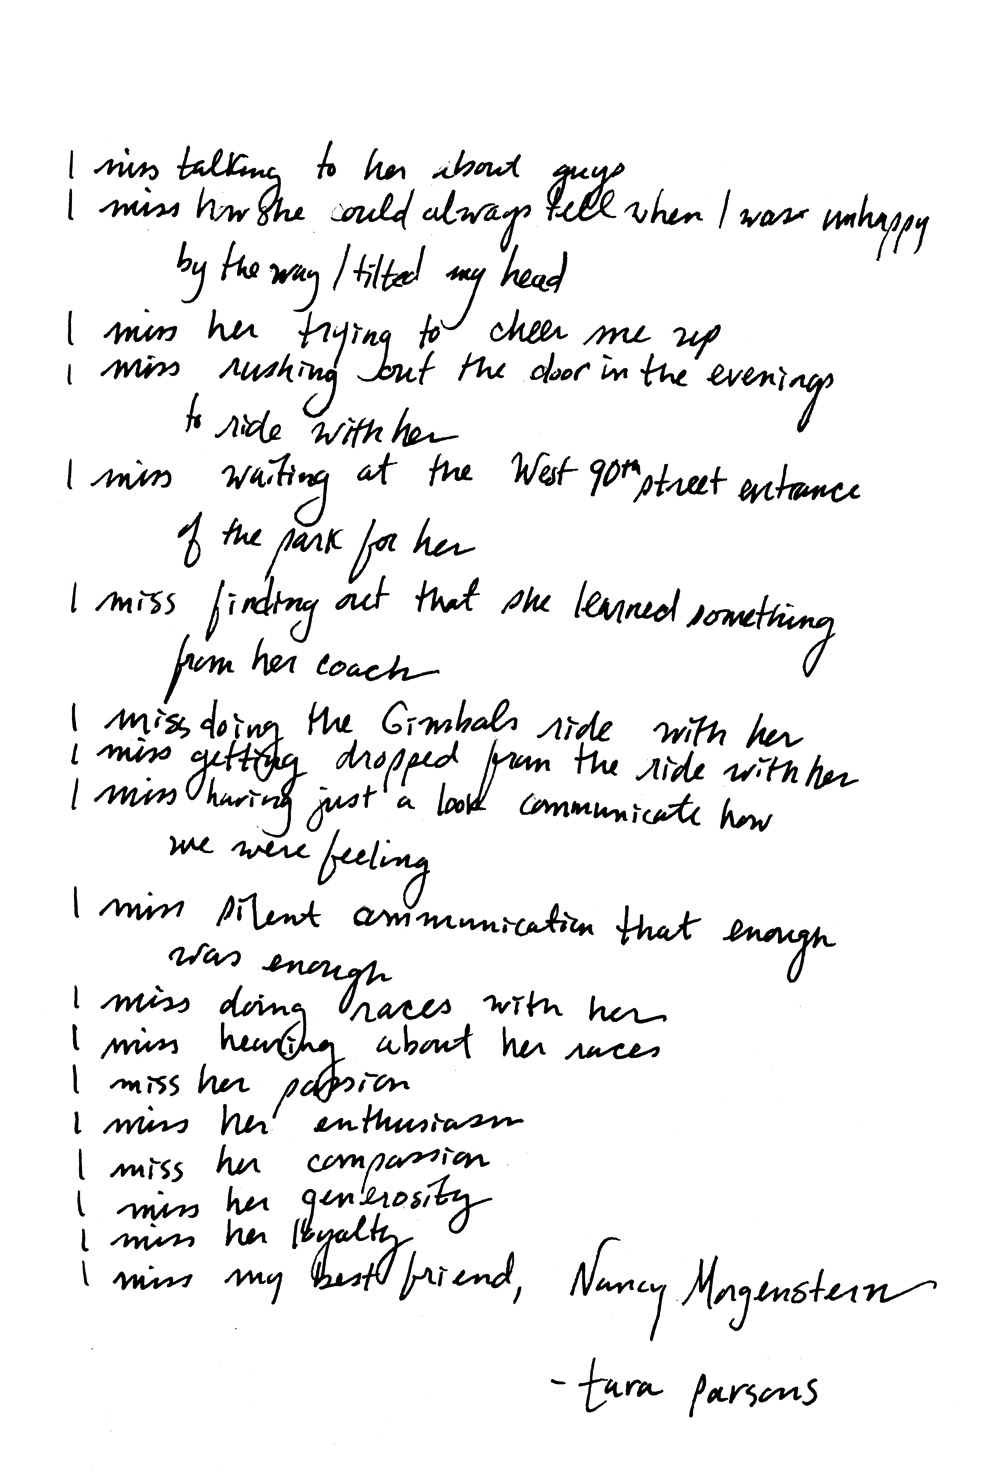 I miss talking to her about guys
I miss how she could always tell when I was unhappy
by the way I tilted my head
I miss her trying to cheer me up
I miss rushing out the door in the evenings
to ride with her
I miss waiting at the West 90th street entrance
of the park for her
I miss finding out that she learned something
from her coach
I miss doing the Gimbals ride with her
I miss getting dropped from the ride with her
I miss having just a look communicate how
we were feeling
I miss silent communication that enough
was enough
I miss doing races with her
I miss hearing about her races
I miss her passion
I miss her enthusiasm
I miss her compassion
I miss her generosity
I miss her loyalty
I miss my best friend, Nancy Morgenstern
- tara parsons